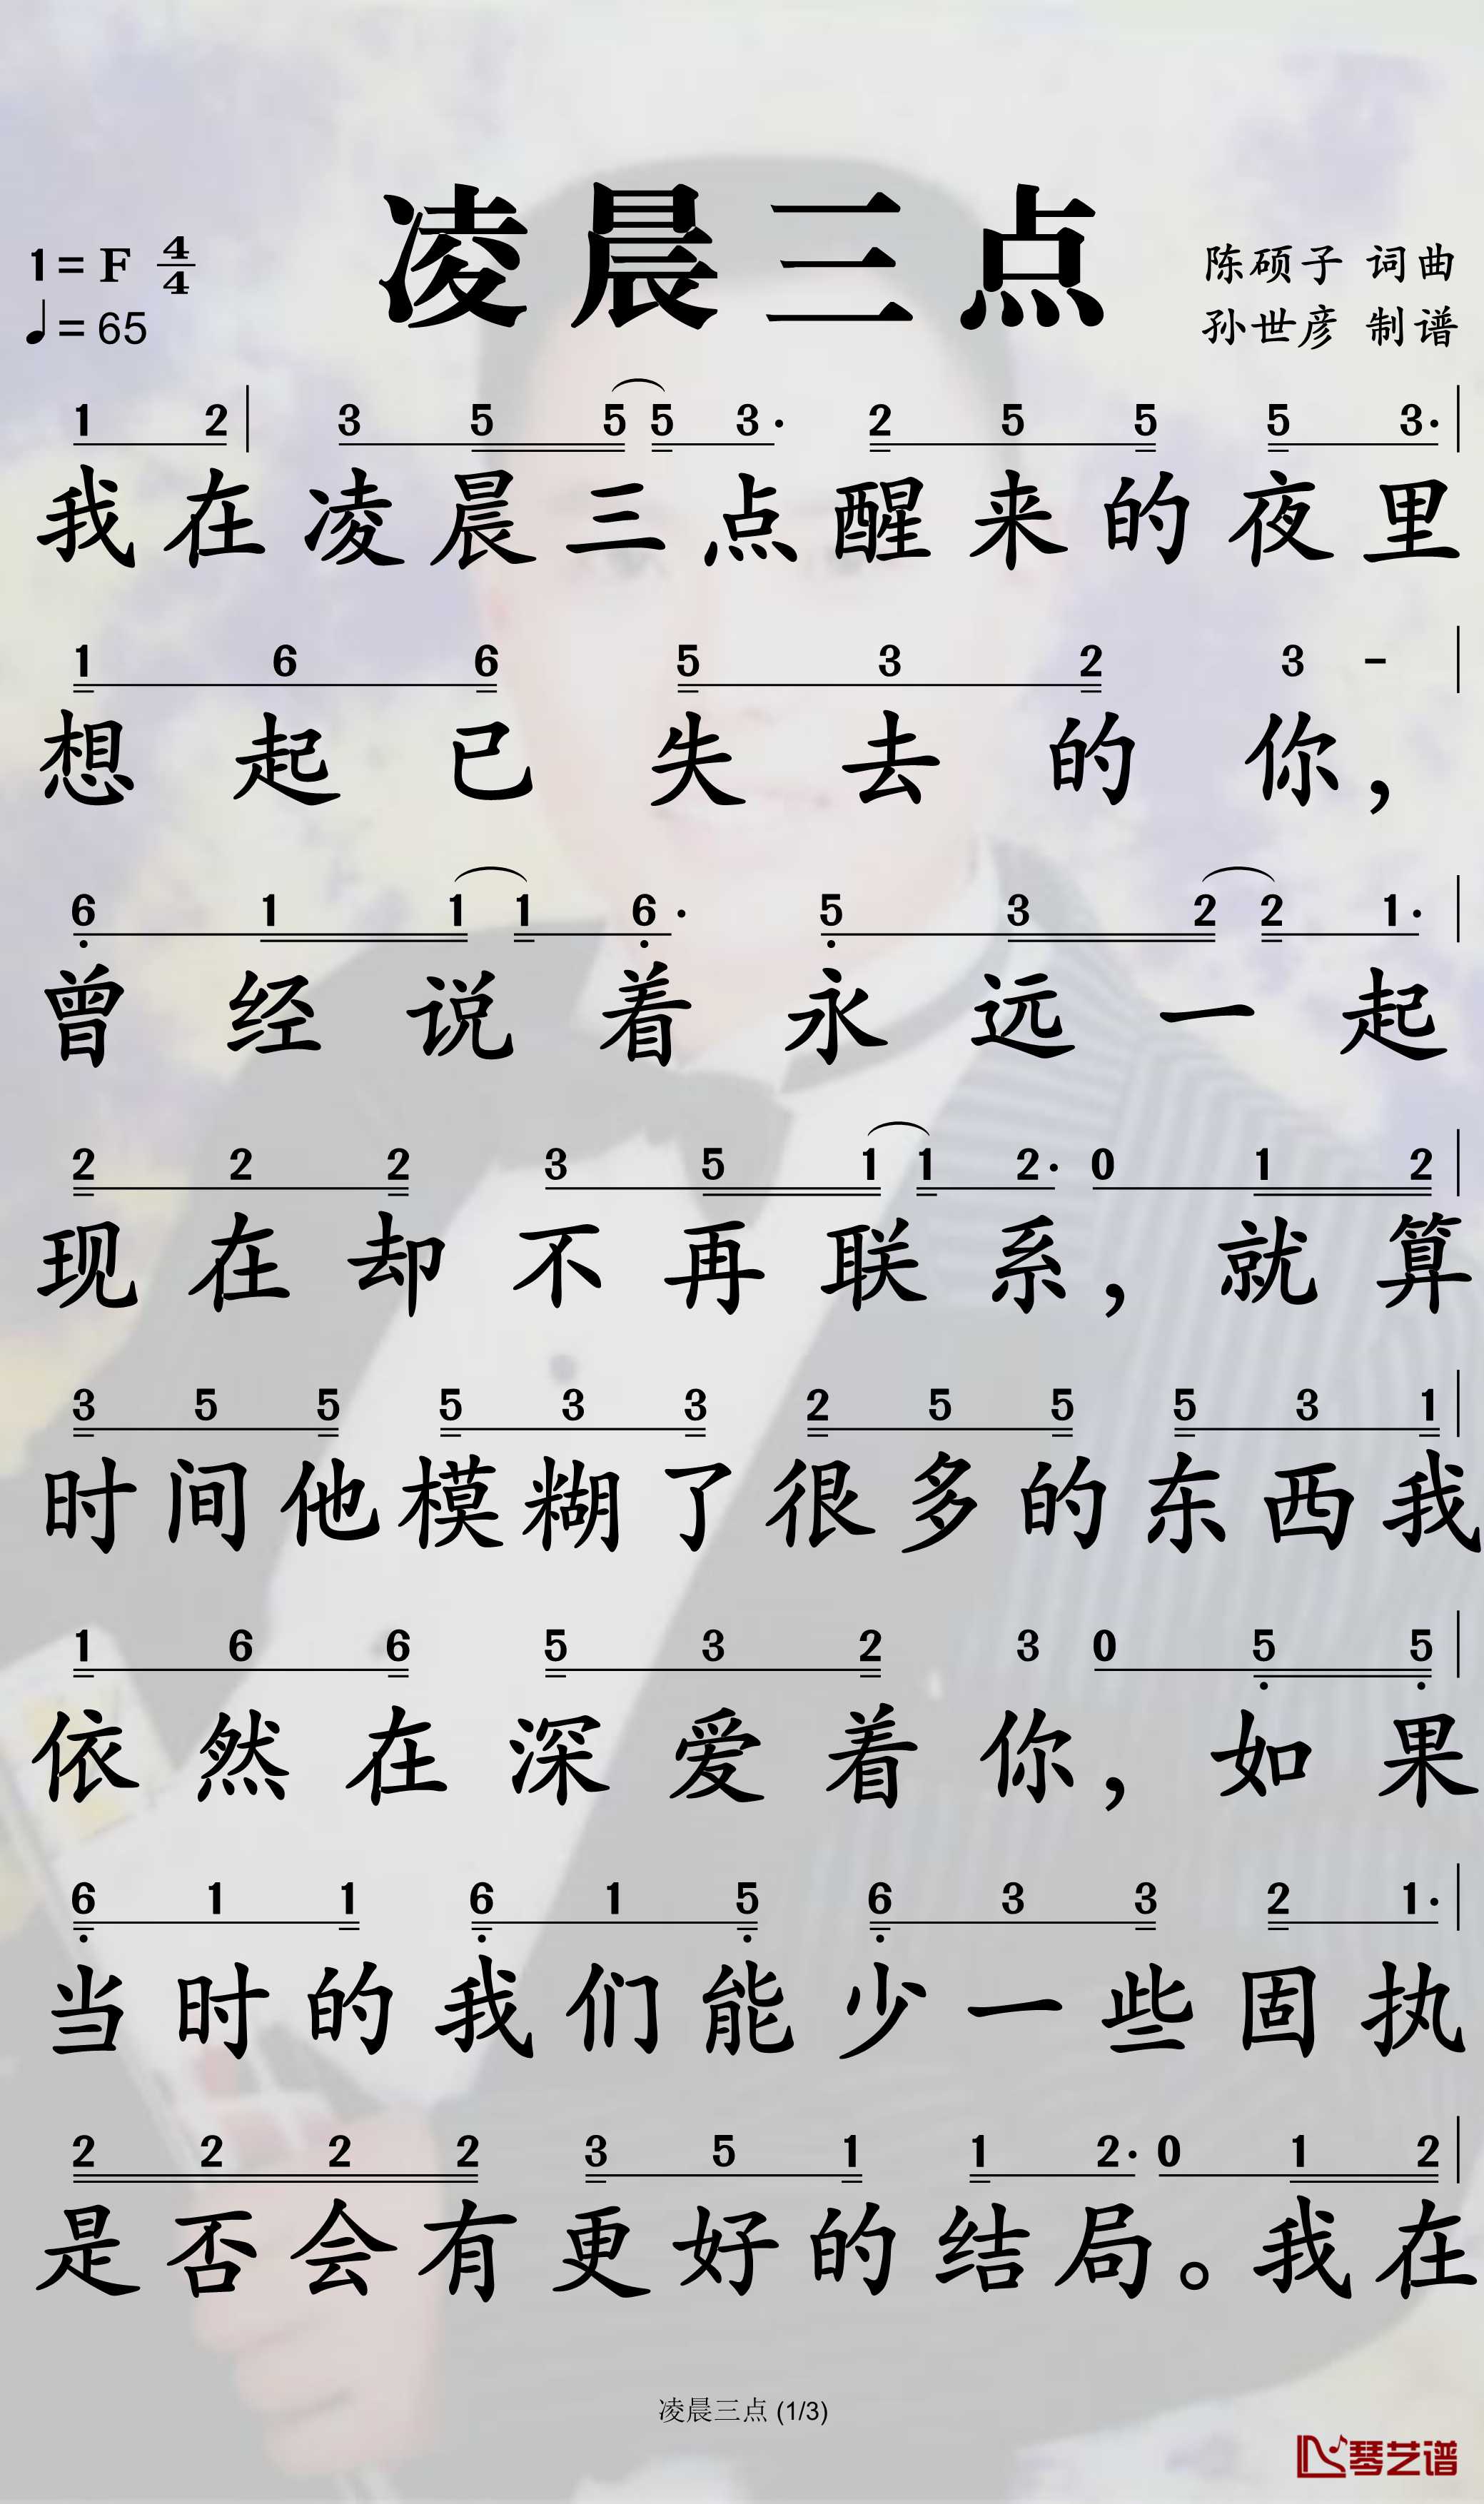 凌晨三点
1=F 4/4
♩=65
陈硕子 词曲
孙世彦 制谱
1 2 | 3 5 5 5 3· 2 5 5 5 3· |
我在凌晨三点醒来的夜里
1 6 6 5 3 2 3 - |
想起已失去的你，
6 1 1 1 6· 5 3 2 2 1· |
曾经说着永远一起
2 2 2 3 5 1 1 2· 0 1 2 |
现在却不再联系，就算
3 5 5 5 3 3 2 5 5 5 3 1 |
时间他模糊了很多的东西我
1 6 6 5 3 2 3 0 5 5 |
依然在深爱着你，如果
6 1 1 6 1 5 6 3 3 2 1· |
当时的我们能少一些固执
2 2 2 2 3 5 1 1 2· 0 1 2 |
是否会有更好的结局。我在
凌晨三点 (1/3)
琴艺谱